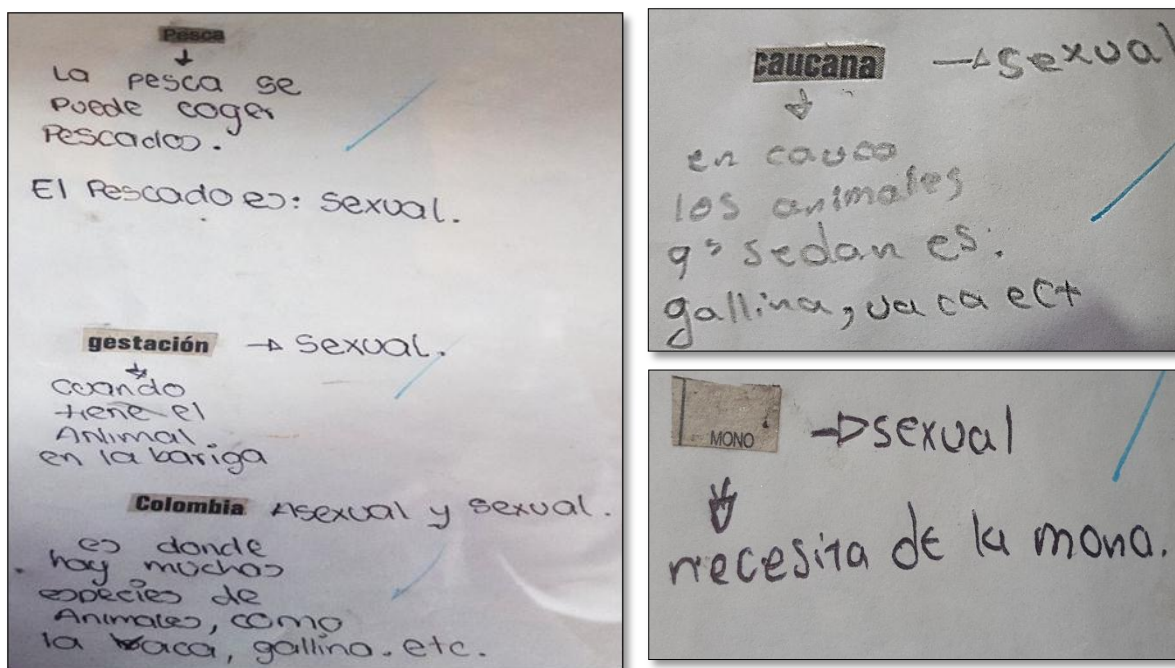 Pesca
La pesca se
puede coger
Pescados.
El Pescado es: sexual.
gestación → sexual.
cuando
tiene el
Animal.
en la bariga
Colombia Asexual y sexual.
es donde
hay muchas
especies de
Animales, como
la vaca, gallina. etc.
caucana → sexual
en cauca
los animales
q' sedan es:
gallina, vaca ect
MONO → sexual
necesita de la mona.